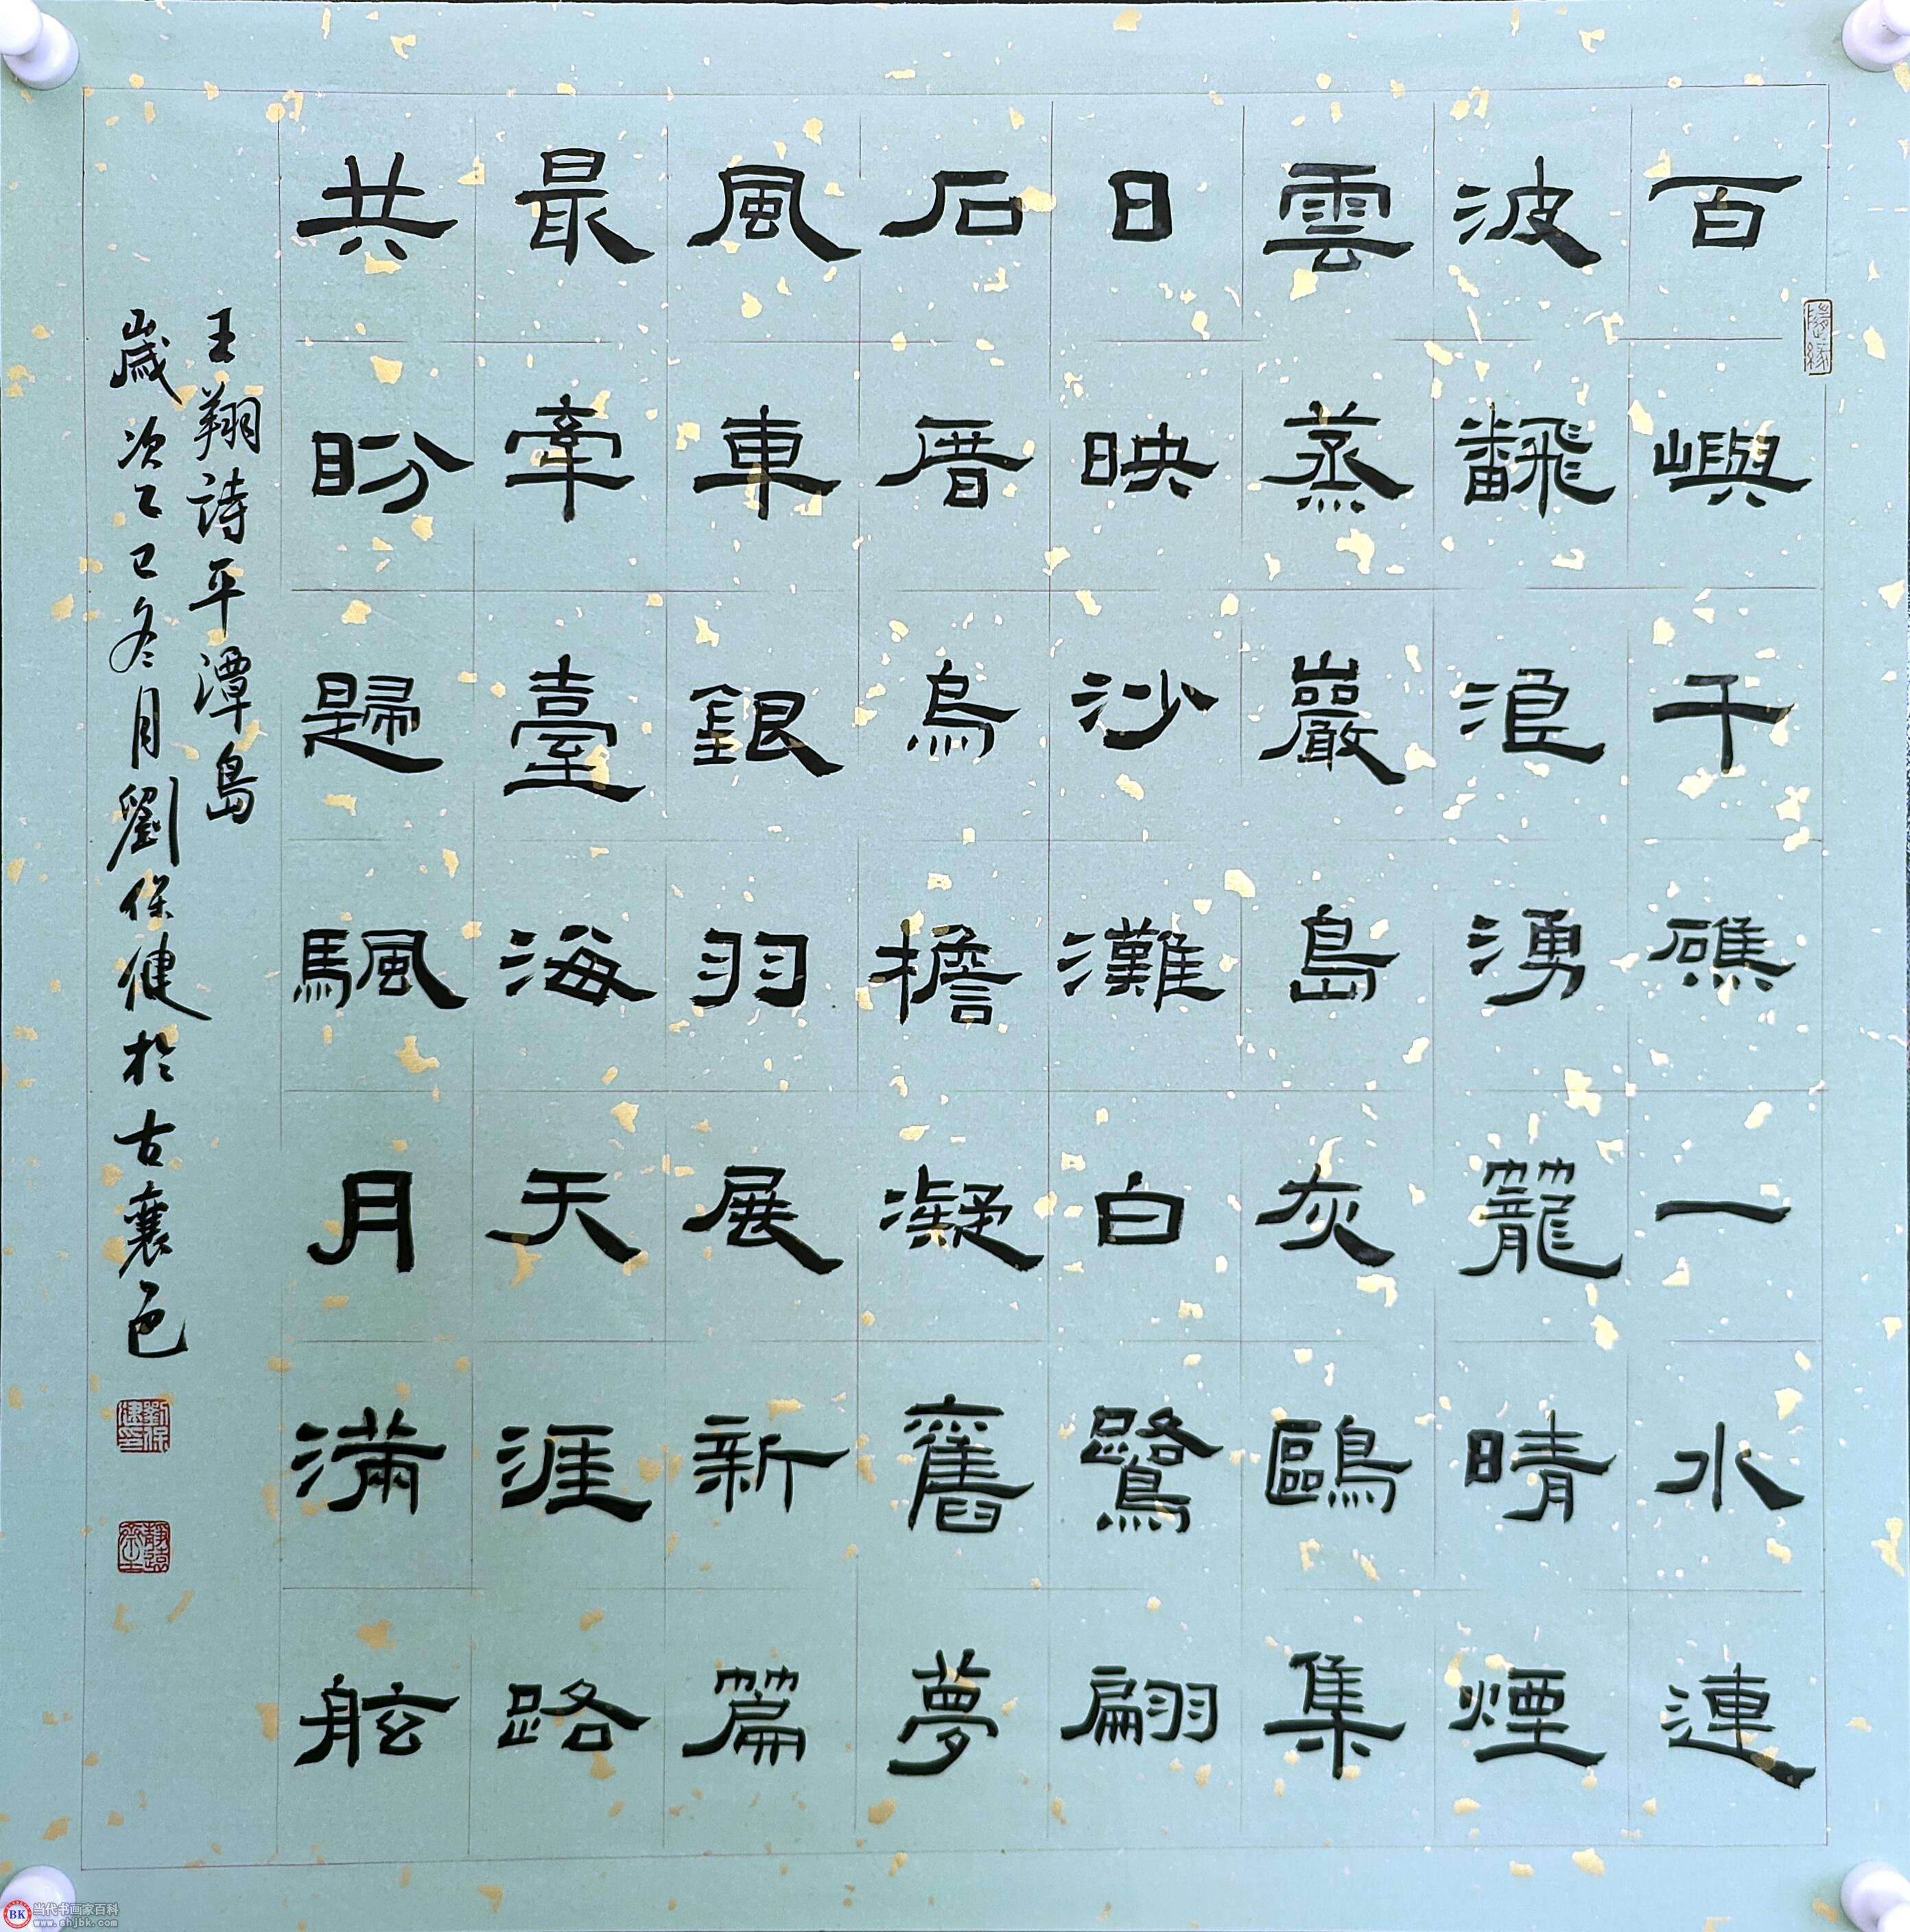 百嶼千礁一水連
波飜浪湧籠晴煙
雲蒸巖島灰鷗集
日映沙灘白鷺翩
石厝烏檐凝舊夢
風車銀羽展新篇
最牽臺海天涯路
共盼歸颿月滿舷
王翔詩平潭島
歲次乙巳冬月劉保健於古襄邑
隨緣
劉保健印
当代书画家百科
www.shjbk.com
BK